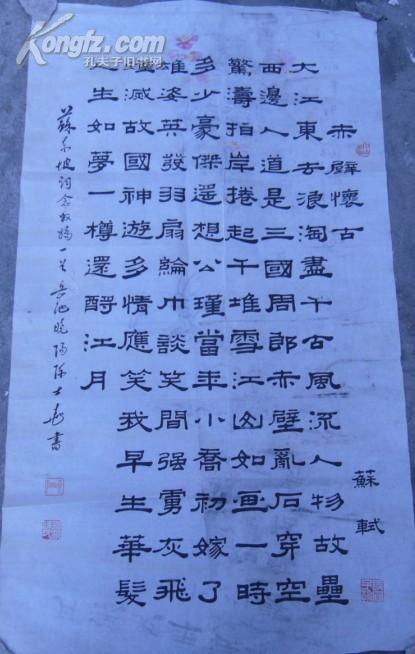 Kongfz.com
孔夫子旧书网
赤壁懷古
蘇軾
大江東去浪淘盡千古風流人物故壘
西邊人道是三國周郎赤壁亂石穿空
驚濤拍岸捲起千堆雪江山如畫一時
多少豪傑遥想公瑾當年小喬初嫁了
雄姿英發羽扇綸巾談笑間强虜灰飛
滅故國神遊多情應笑我早生華髮
人生如夢一樽還酹江月
蘇東坡詞念奴嬌一首岳池晓陽陈士書